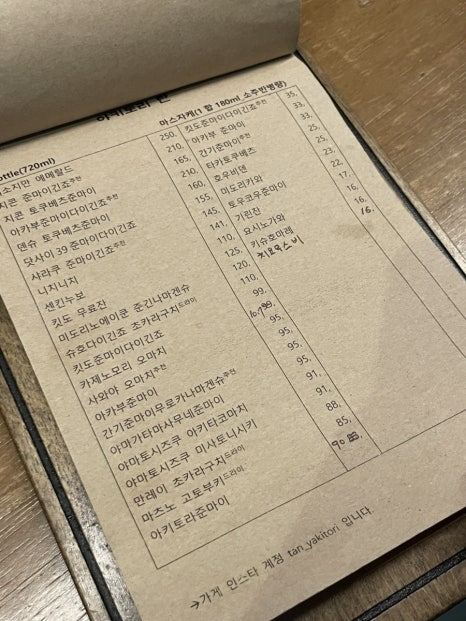 야키토리 탄
ottle(720ml)
소지만 에메랄드 250,
지콘 준마이다이긴죠추천 210,
지콘 토쿠베츠준마이 165,
아카부준마이다이긴죠추천 210,
덴슈 토쿠베츠준마이 160,
닷사이39 준마이다이긴죠 155,
샤라쿠 준마이긴죠추천 145,
니치니치 141,
센킨누보 110,
킷도 무료진 125,
미도리노에이콘 준긴나마겐슈 120,
슈호다이긴죠 초카라구치드라이 110,
킷도준마이다이긴죠 99,
카제노모리 오마치
사와야 오마치추천 95,
아카부준마이 95,
간기준마이무로카나마겐슈추천 95,
야마가타마사무네준마이 95,
야마토시즈쿠 아키타코마치 91,
야마토시즈쿠 미사토니시키 91,
만레이 초카라구치드라이 88,
마츠노 고토부키드라이 85,
아키토라준마이 90
마스자케(1 합 180ml 소주반병량)
킷도준마이다이긴죠추천 35,
아카부 준마이 33,
간기준마이추천 33,
타카토쿠베츠 25,
호우비덴 25,
미도리카와 23,
토우코우준마이 22,
기린잔 17,
요시노가와 16,
키슈호마레 16,
치요무스비 16.
→가게 인스타 계정 tan_yakitori 입니다